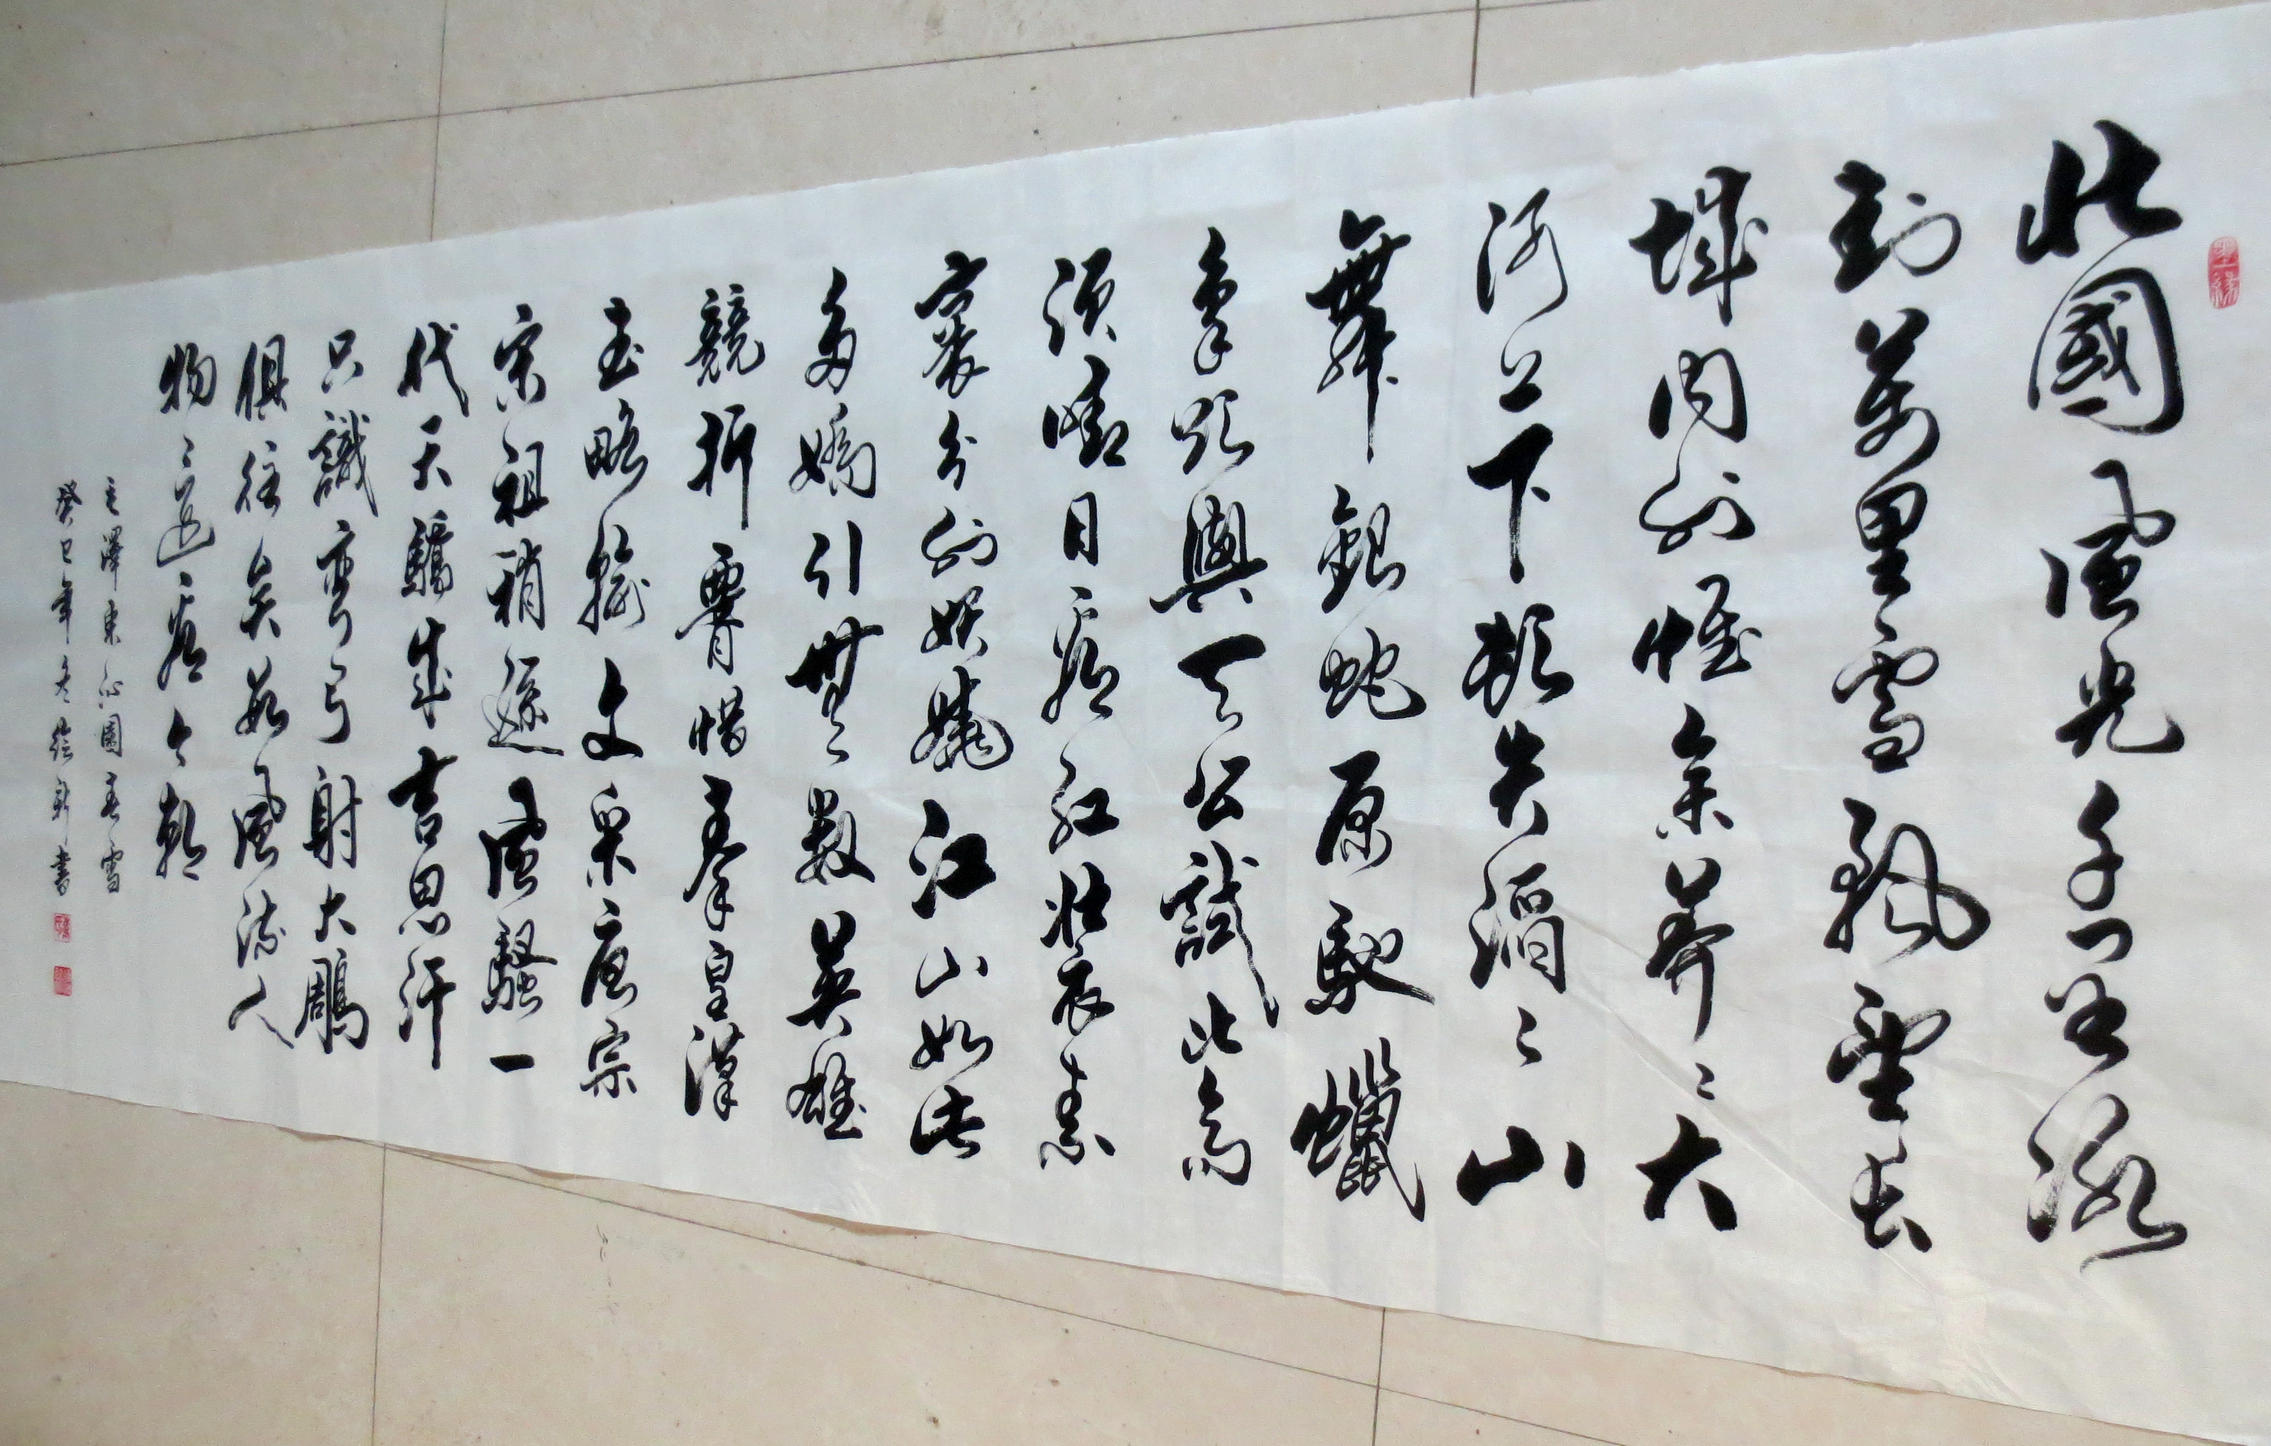 北國風光千里冰
封萬里雪飄望長
城内外惟余莽〻大
河上下頓失滔〻山
舞銀蛇原馳蠟
象欲與天公試比高
須晴日看紅裝素
裹分外妖嬈江山如此
多嬌引無數英雄
競折腰惜秦皇漢
武略輸文采唐宗
宋祖稍遜風騷一
代天驕成吉思汗
只識彎弓射大鵰
俱往矣數風流人
物還看今朝
毛澤東沁園春雪
癸巳年冬徐新書